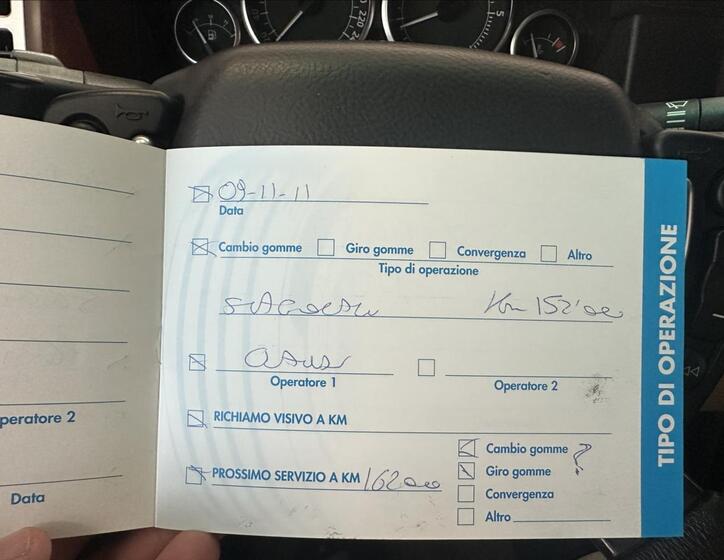 09-11-11
Data
Cambio gomme Giro gomme Convergenza Altro
Tipo di operazione
Km 152'000
Operatore 1 Operatore 2
RICHIAMO VISIVO A KM
Cambio gomme ?
Giro gomme
PROSSIMO SERVIZIO A KM 162000
Convergenza
Altro
TIPO DI OPERAZIONE
peratore 2
Data
220
5